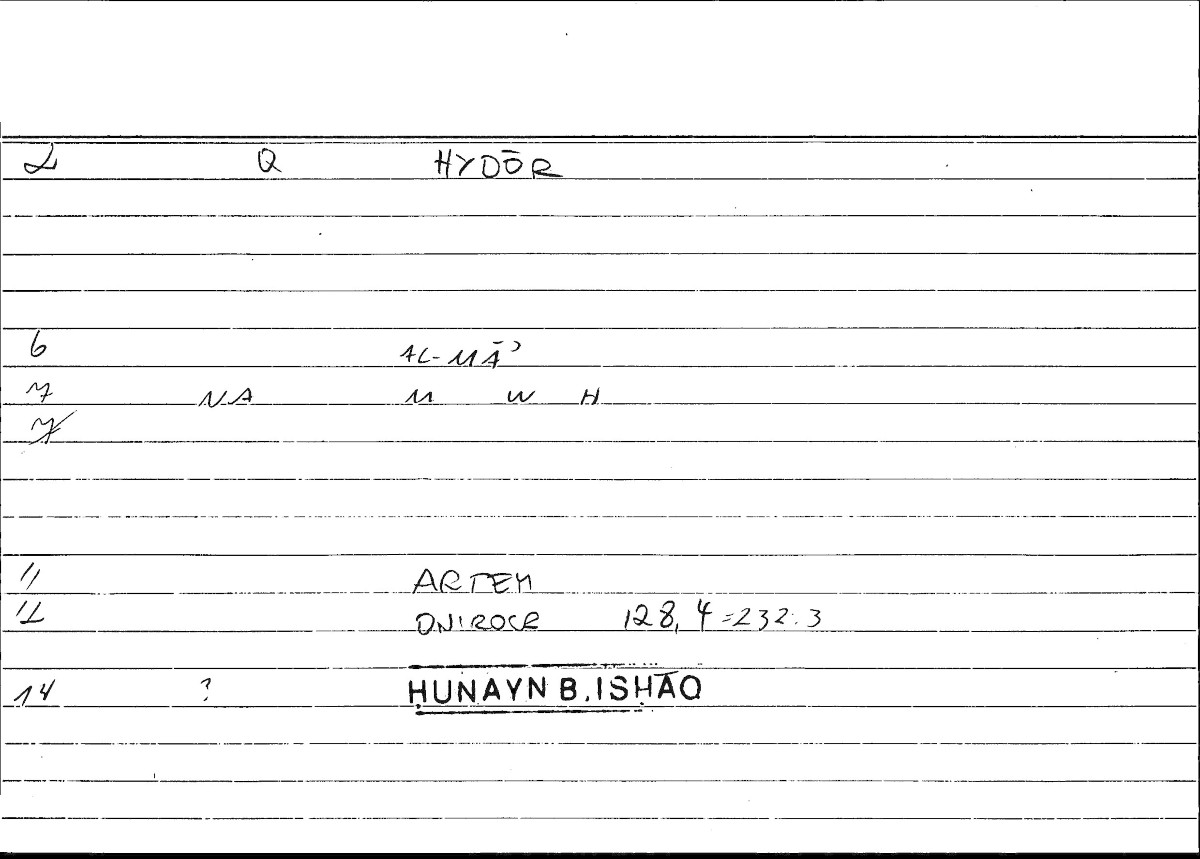 2 Q HYDŌR
6 AL-MĀʾ
7 NA M W H
7
11 ARTEM
12 ONIROCR 128,4=232.3
14 ? ḤUNAYN B. ISḤĀQ